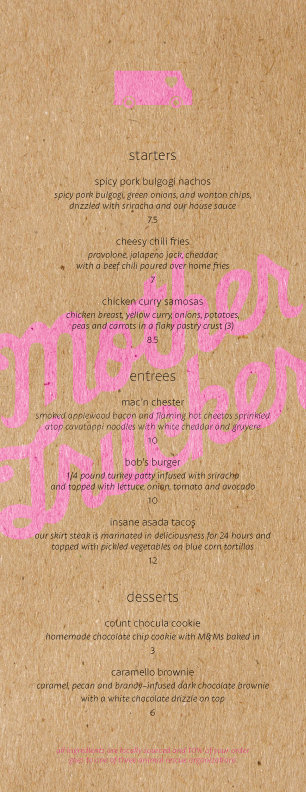 starters
spicy pork bulgogi nachos
spicy pork bulgogi, green onions, and wonton chips,
drizzled with sriracha and our house sauce
7.5
cheesy chili fries
provolone, jalapeno jack, cheddar,
with a beef chili poured over home fries
7
chicken curry samosas
chicken breast, yellow curry, onions, potatoes,
peas and carrots in a flaky pastry crust (3)
8.5
mother
trucker
entrees
mac'n chester
smoked applewood bacon and flaming hot cheetos sprinkled
atop cavatappi noodles with white cheddar and gruyere
10
bob's burger
1/4 pound turkey patty infused with sriracha
and topped with lettuce, onion, tomato and avocado
10
insane asada tacos
our skirt steak is marinated in deliciousness for 24 hours and
topped with pickled vegetables on blue corn tortillas
12
desserts
count chocula cookie
homemade chocolate chip cookie with M&Ms baked in
3
caramello brownie
caramel, pecan and brandy-infused dark chocolate brownie
with a white chocolate drizzle on top
6
all ingredients are locally sourced and 10% of your order
goes to one of three animal rescue organizations.